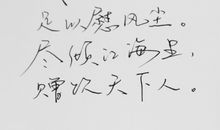 足以慰风尘。
尽倾江海里,
赠饮天下人。